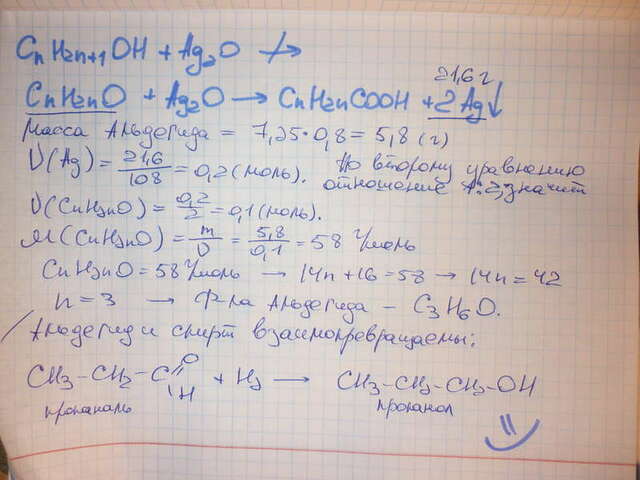 CnH2n+1OH + Ag2O ↛
21,6 г
CnH2nO + Ag2O → CnH2nCOOH + 2Ag↓
Масса Альдегида = 7,25·0,8 = 5,8 (г)
ν(Ag) = 21,6/108 = 0,2 (моль). По второму уравнению
отношение 1:2, значит
ν(CnH2nO) = 0,2/2 = 0,1 (моль).
M(CnH2nO) = m/ν = 5,8/0,1 = 58 г/моль
CnH2nO = 58 г/моль → 14n + 16 = 58 → 14n = 42
n = 3 → Ф-ла Альдегида – C3H6O.
Альдегид и спирт взаимопревращаемы:
CH3–CH2–C=O–H + H2 → CH3–CH2–CH2–OH
пропаналь пропанол